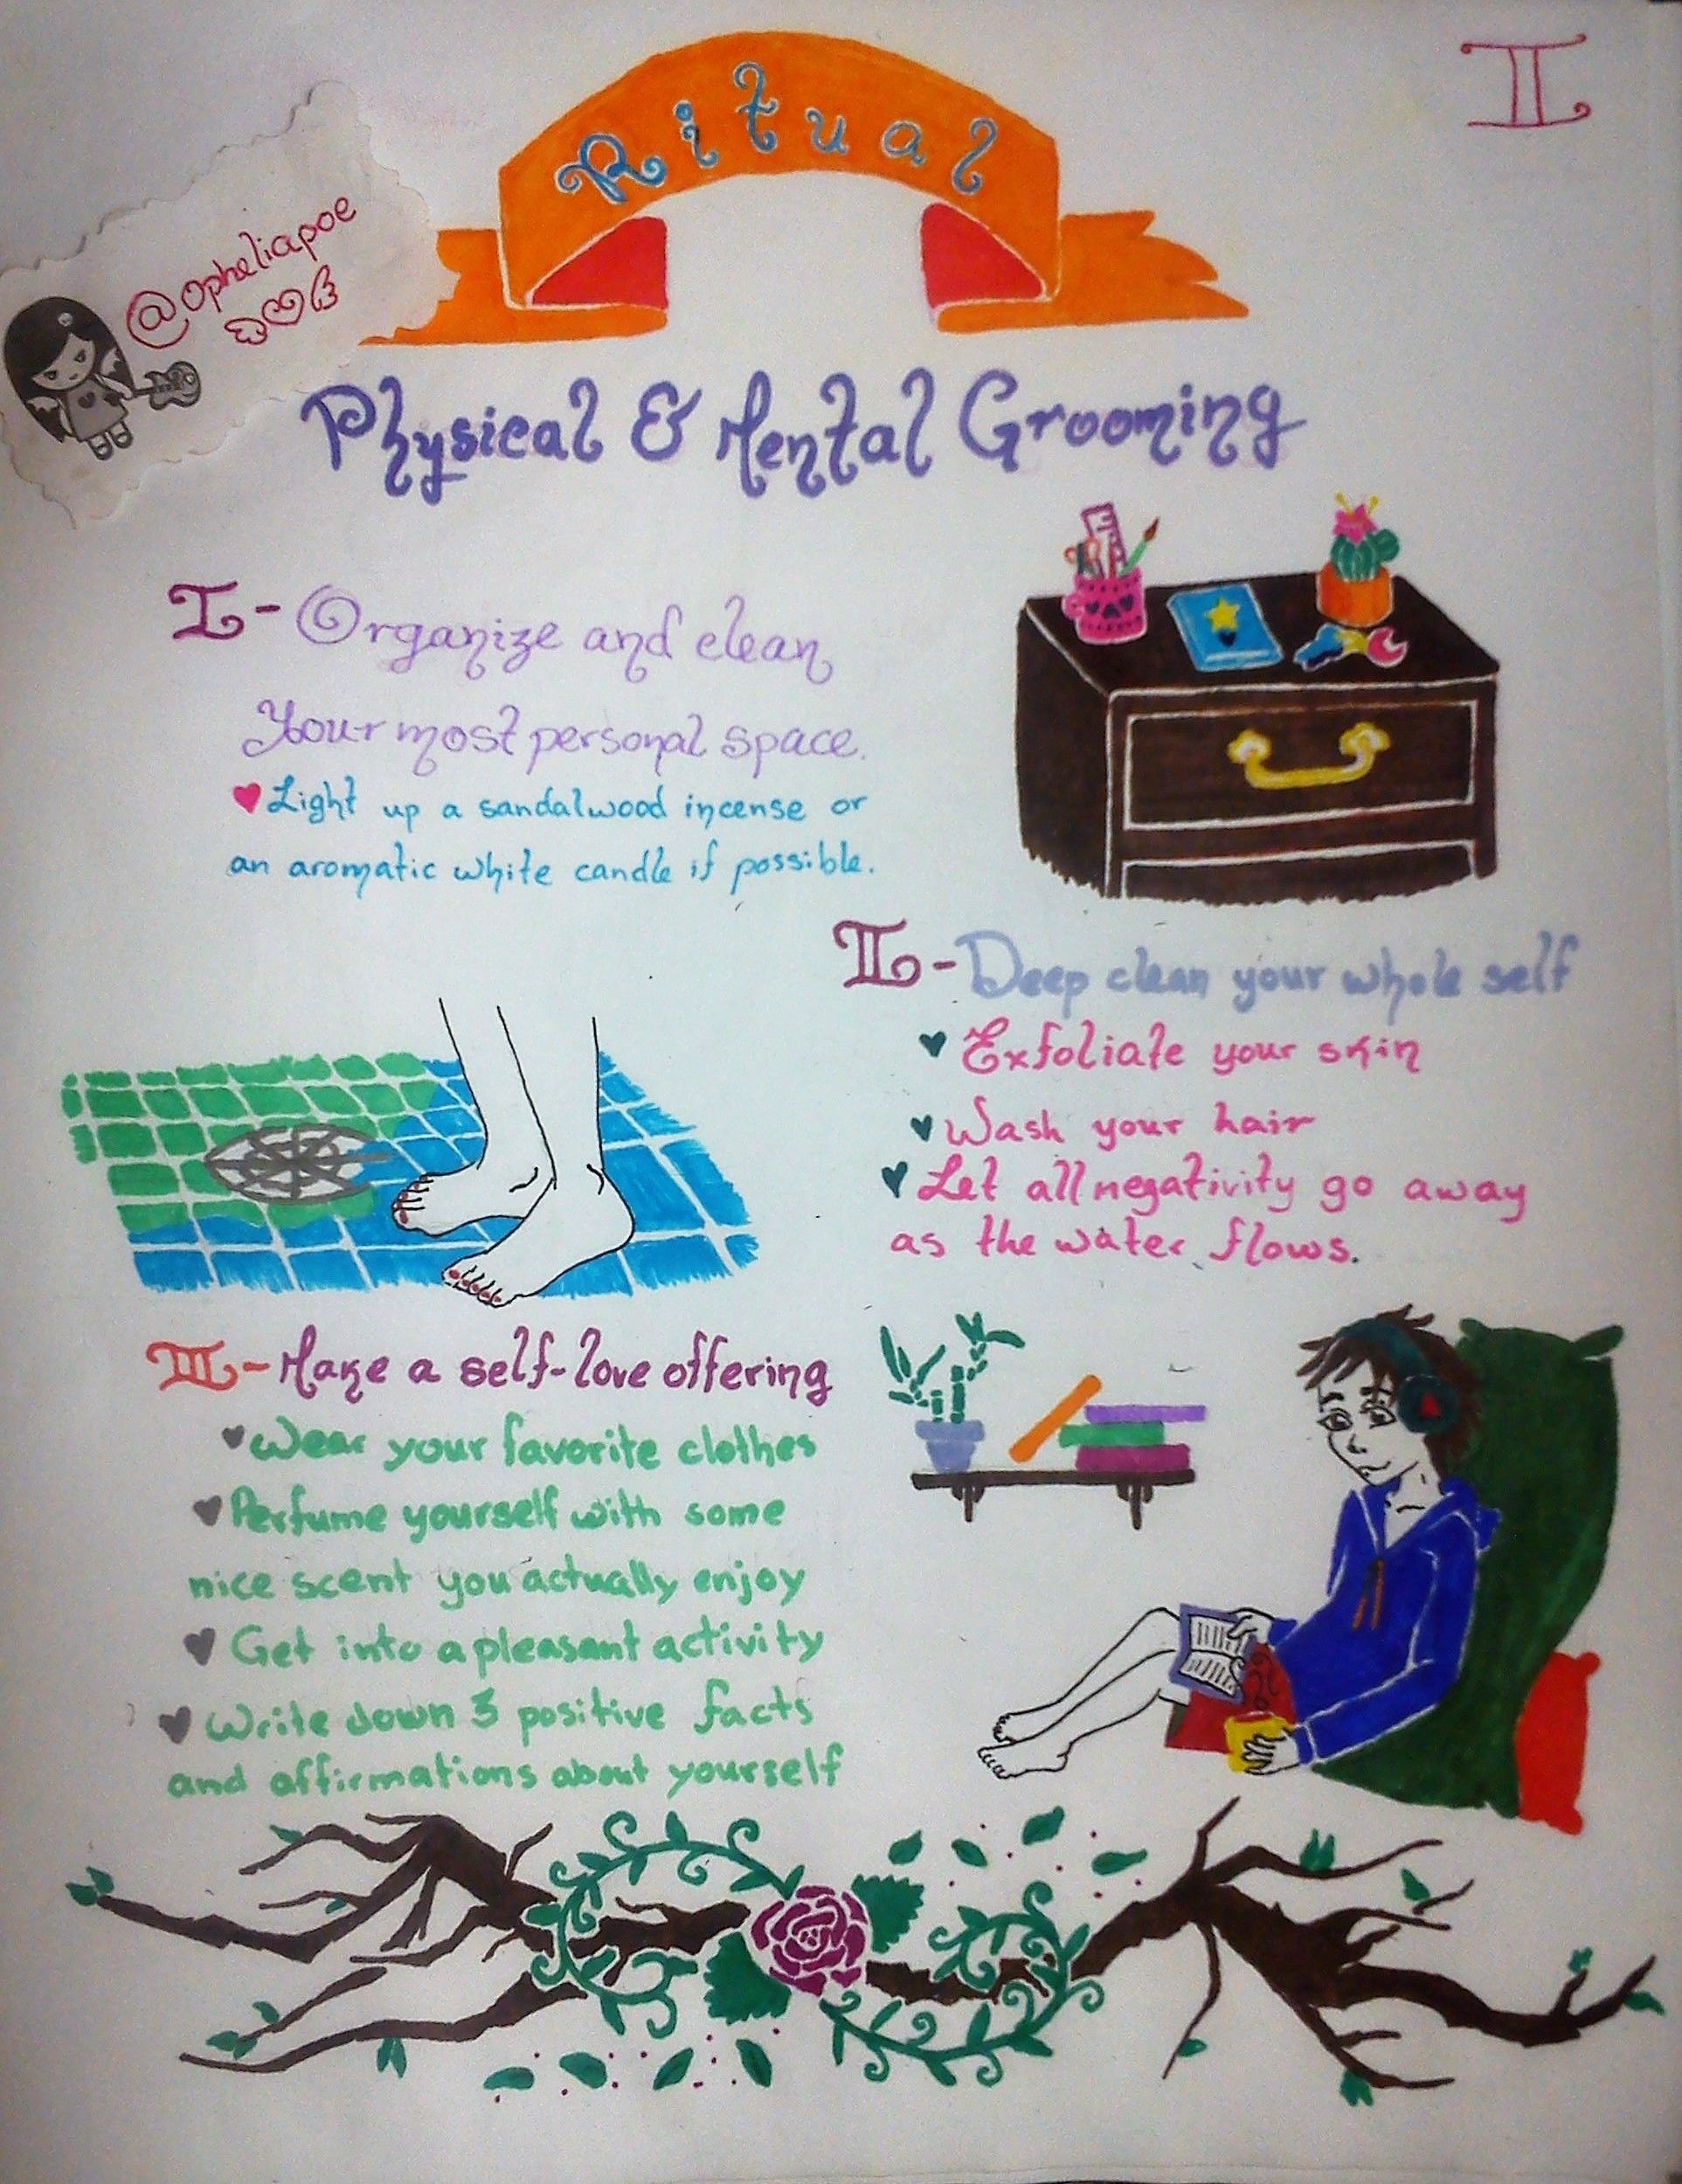 II
Ritual
@opheliapoe
Physical & Mental Grooming
I- Organize and clean
Your most personal space.
Light up a sandalwood incense or
an aromatic white candle if possible.
II- Deep clean your whole self
Exfoliate your skin
Wash your hair
Let all negativity go away
as the water flows.
III- Make a self-love offering
Wear your favorite clothes
Perfume yourself with some
nice scent you actually enjoy
Get into a pleasant activity
Write down 3 positive facts
and affirmations about yourself